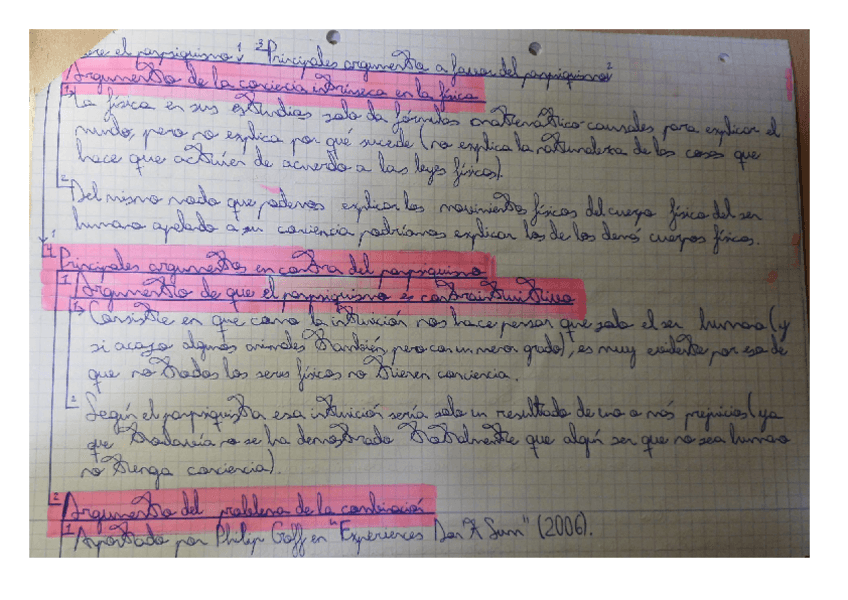 sobre el panpsiquismo¹; ³Principales argumentos a favor del panpsiquismo²
Argumento de la conciencia intrínseca en la física
1 La física en sus estudios solo da fórmulas matemático-causales para explicar el
mundo, pero no explica por qué sucede (no explica la naturaleza de las cosas que
hace que actúen de acuerdo a las leyes físicas).
2 Del mismo modo que podemos explicar los movimientos físicos del cuerpo físico del ser
humano apelado a su conciencia podríamos explicar los de los demás cuerpos físicos.
4. Principales argumentos en contra del panpsiquismo
1 Argumento de que el panpsiquismo es contraintuitivo
1 Consiste en que como la intuición nos hace pensar que solo el ser humano (y
si acaso algunos animales también, pero con un menor grado), es muy evidente por eso de
que no todos los seres físicos no tienen conciencia.
2 Según el panpsiquista esa intuición sería solo un resultado de uno o más prejuicios (ya
que todavía no se ha demostrado totalmente que algún ser que no sea humano
no tenga conciencia).
2 Argumento del problema de la combinación
1 Aportado por Philip Goff en "Experiences Don't Sum" (2006).